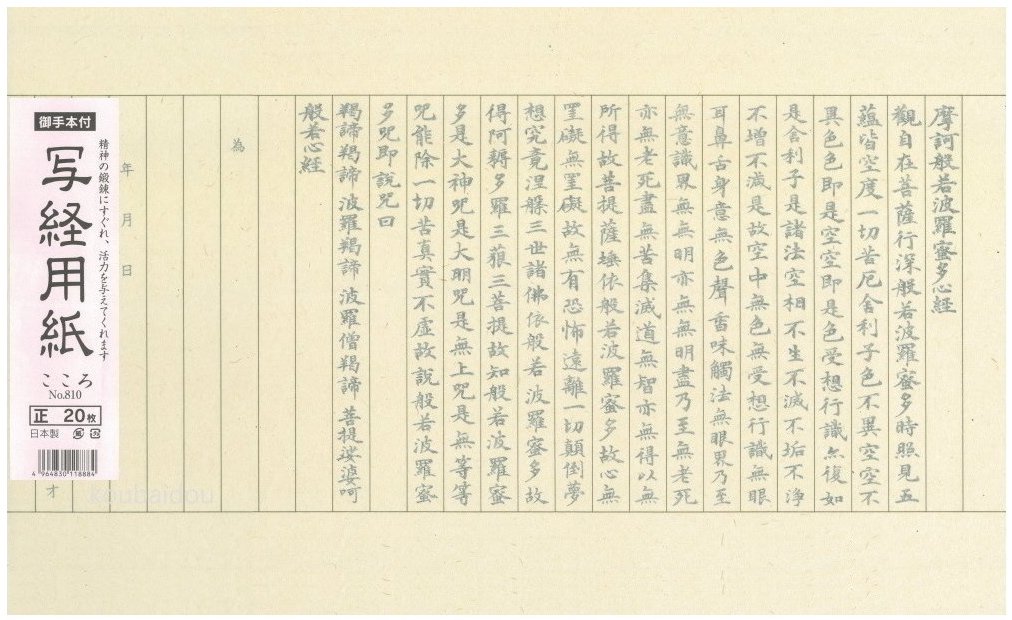 摩訶般若波羅蜜多心経
觀自在菩薩行深般若波羅蜜多時照見五
蘊皆空度一切苦厄舍利子色不異空空不
異色色即是空空即是色受想行識亦復如
是舍利子是諸法空相不生不滅不垢不淨
不增不減是故空中無色無受想行識無眼
耳鼻舌身意無色聲香味觸法無眼界乃至
無意識界無無明亦無無明盡乃至無老死
亦無老死盡無苦集滅道無智亦無得以無
所得故菩提薩埵依般若波羅蜜多故心無
罣礙無罣礙故無有恐怖遠離一切顛倒夢
想究竟涅槃三世諸佛依般若波羅蜜多故
得阿耨多羅三藐三菩提故知般若波羅蜜
多是大神呪是大明呪是無上呪是無等等
呪能除一切苦真實不虛故說般若波羅蜜
多呪即說呪曰
羯諦羯諦 波羅羯諦 波羅僧羯諦 菩提娑婆呵
般若心経
為
年 月 日
才
御手本付
精神の鍛錬にすぐれ、活力を与えてくれます
写経用紙
こころ
No.810
正 20枚
日本製
4 964830 118884
koubaidou